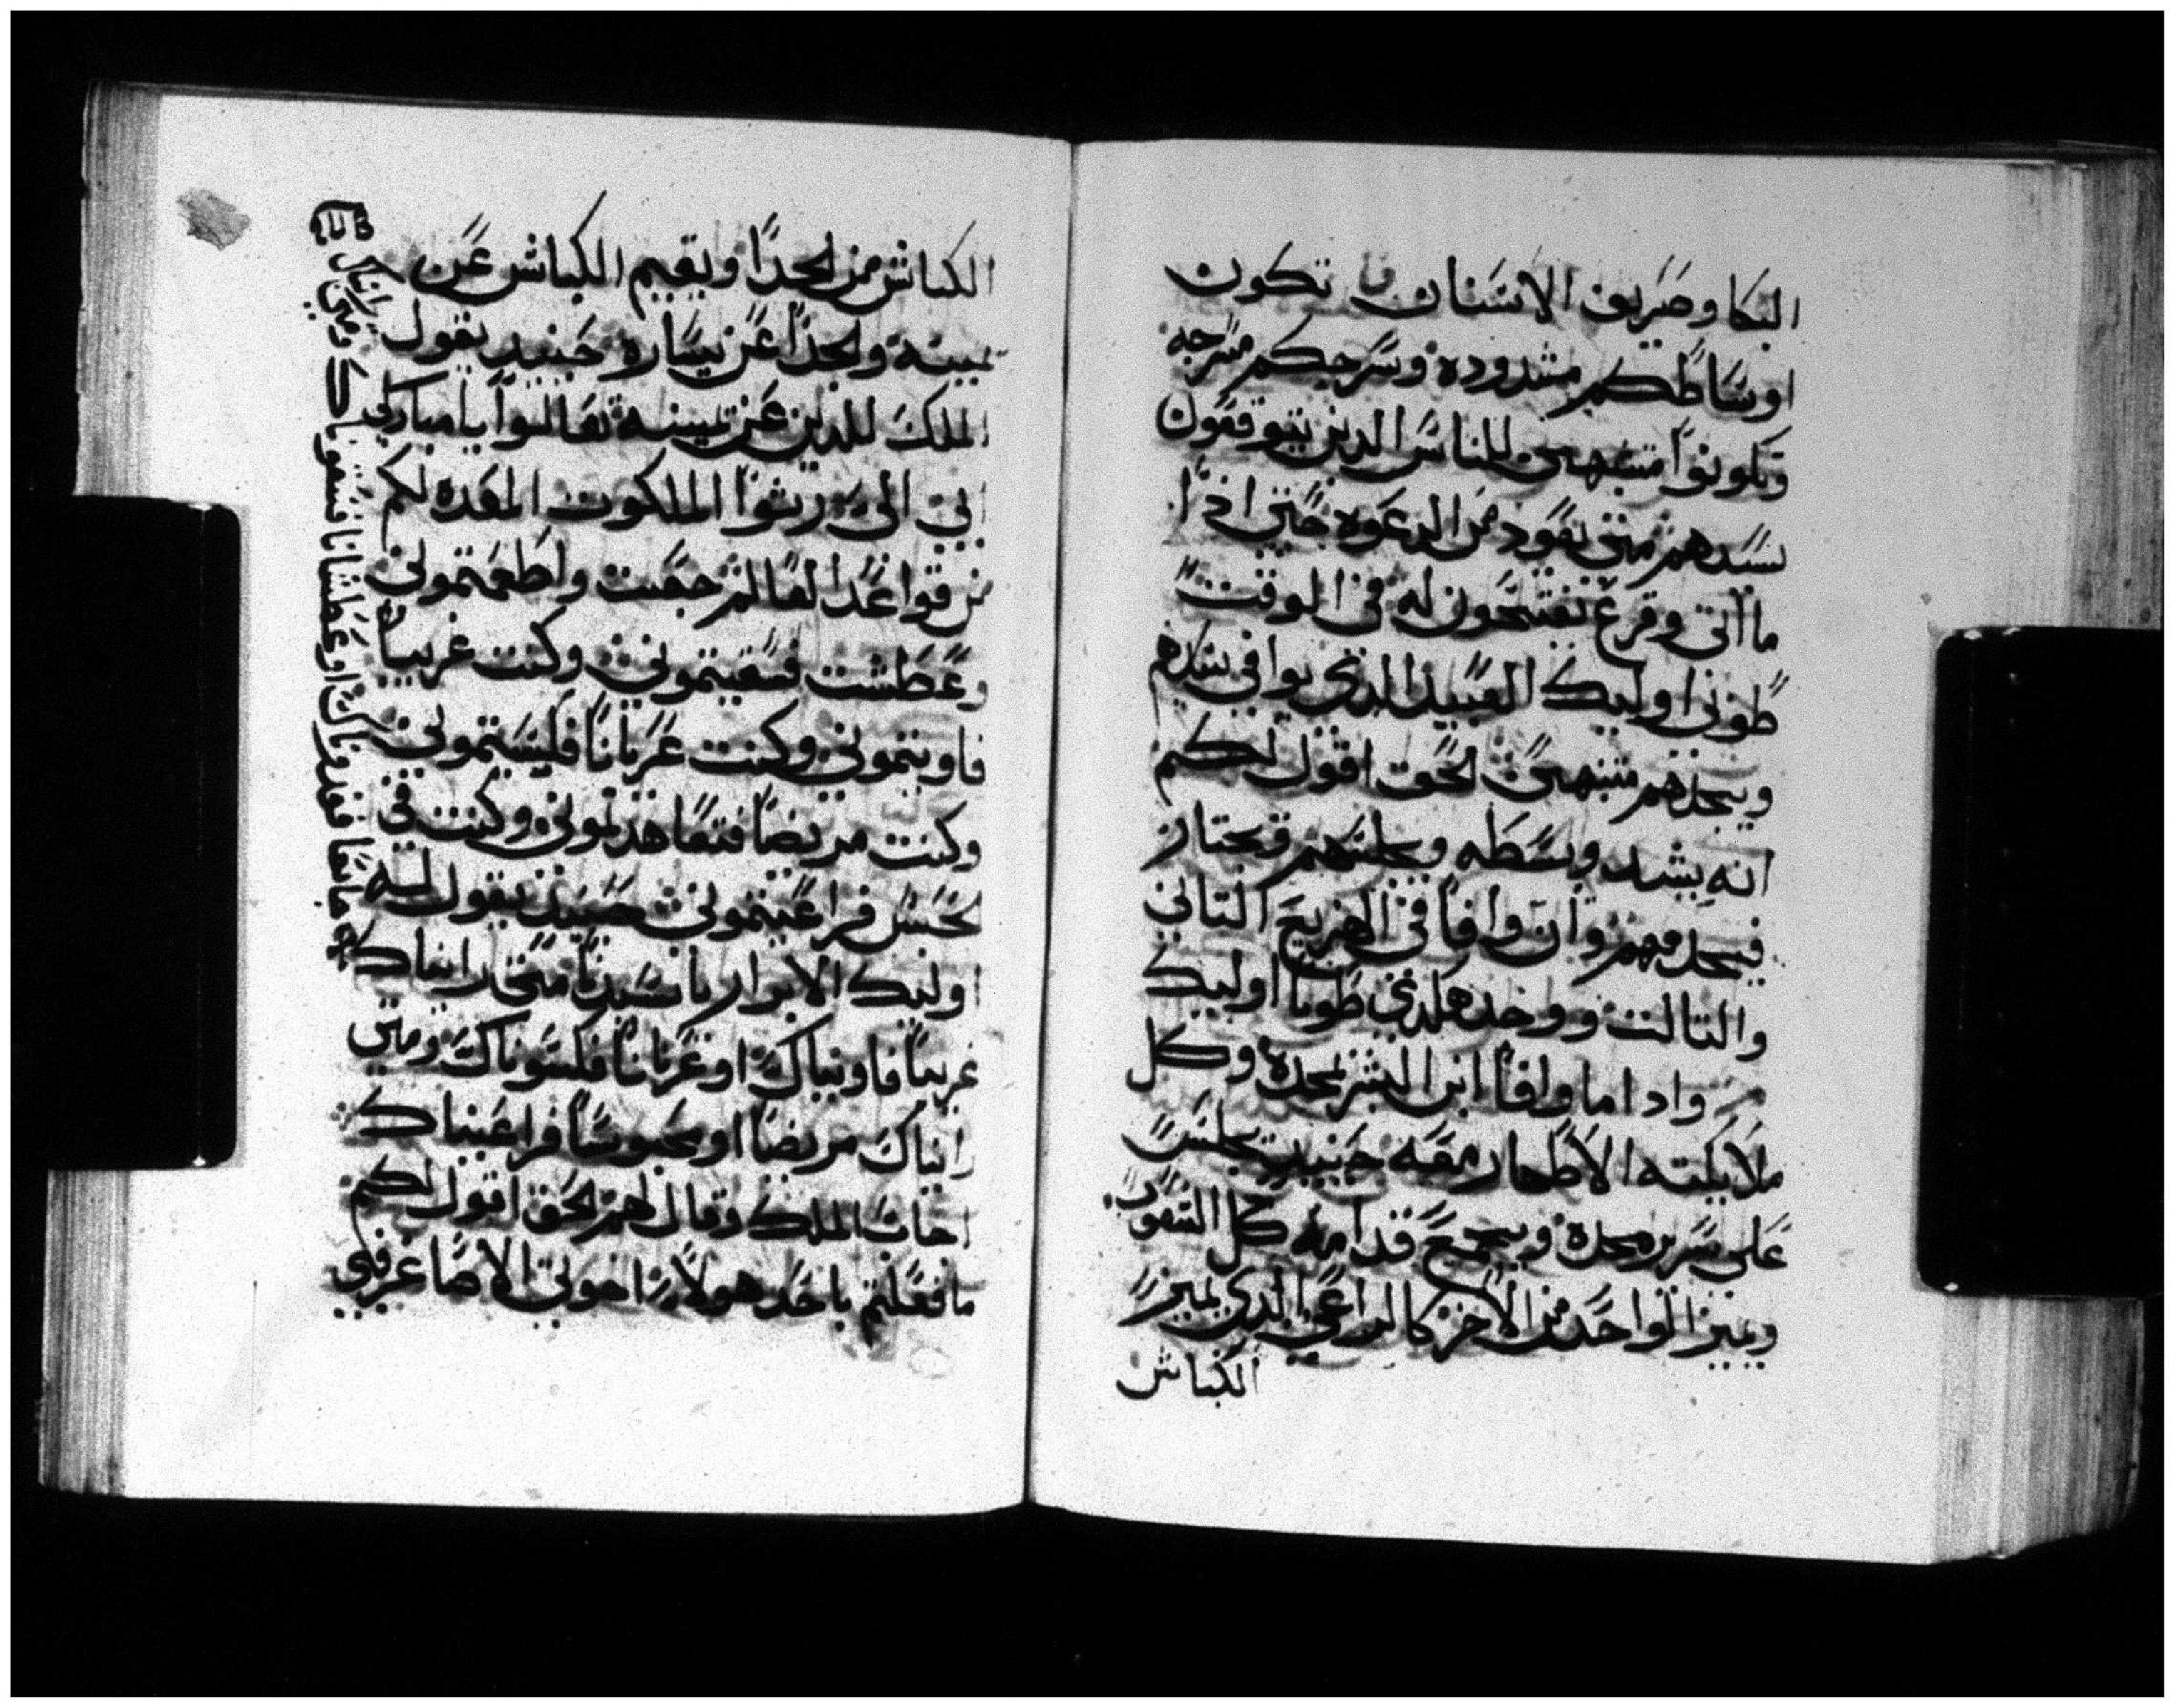 البكا وصريف الاسنان تكون
اوساطكم مشدوده وسرجكم مسرجه
وتكونوا متشبهين للناس الدين يتوقعون
سيدهم متى يعود من الدعوه حتى ادا
ما اتى وقرع يفتحون له فى الوقت
طوبى اوليك العبيد الدي يوافي سيدهم
ويجدهم متنبهين الحق اقول لكم
انه يشد وسطه ويجلسهم ويجتاز
فيخدمهم وان وافا في الهزيع التاني
والتالت ووجد هكدي طوبا اوليك
وادا ما وافا ابن البشر بمجده وكل
ملايكته الاطهار معه حينيد يجلس
على سرير مجده ويجمع قدامه كل الشعوب
ويميز الواحد من الاخر كالراعي الدي يميز
الكباش
الكباش من الجدا ويقيم الكباش عن
يمينه والجدا عن يساره حينيد يقول
الملك للدين عن يمينه تعالوا يا مباركي
ابي الي رثوا الملكوت المعده لكم
من قواعد العالم جعت واطعمتموني
وعطشت فسقيتموني وكنت غريبا
فاويتموني وكنت عريانا فكسيتموني
وكنت مريضا فتعاهدتموني وكنت في
الحبس فراعيتموني حينيد يقول له
اوليك الابرار يا سيدنا متى رايناك
جايعا فعدوناك او عطشانا فسقيناك ومتى رايناك
غريبا فاويناك او عريانا فكسوناك ومتى
رايناك مريضا او محبوسا فراعيناك
اجاب الملك وقال لهم الحق اقول لكم
ما فعلتم باحد هولاء اخوتي الاصاغر فبي